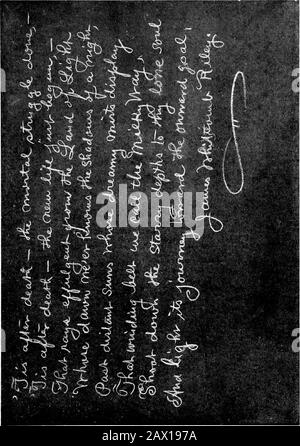 'Tis after death — the mortal struggle done —
'Tis after death — the new life just begun, —
That range effulgent grows the Land of Light
Whose dawn ne'er knows the shadows of a night,
Past distant suns whose dreamy mists display
That winding belt we call the Milky Way,
Shoot down the starry depths to thy lone soul
And light its journey toward the onward goal,
James Whitcomb Riley.
alamy
Image ID: 2AX197A
www.alamy.com